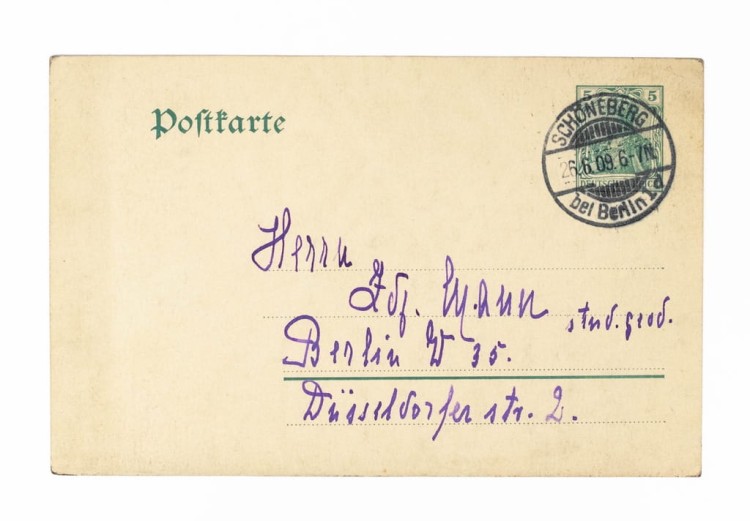 Postkarte
5 5
SCHÖNEBERG
26.6.09.6-7N.
bei Berlin 1d
DEUTSCH
Herrn
Mann stud. geod.
Berlin W 35.
Düsseldorfer str. 2.